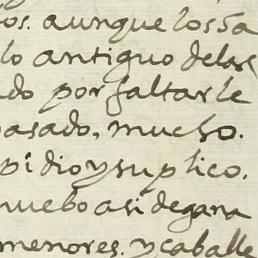 os. aunque los sa
lo antiguo delas
do por faltarle
pasado, mucho.
pidio y suplico.
nuebo asi de gana
menores. y caballe